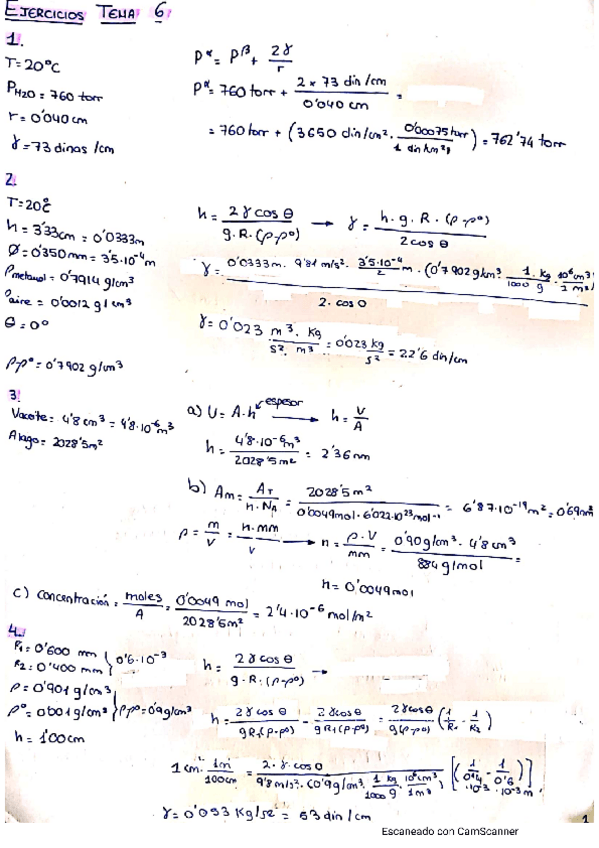 EJERCICIOS TEMA 6
1.
T=20°C
P_H2O = 760 torr
r = 0'040 cm
γ = 73 dinas /cm
P^α = P^β + 2γ/r
P^α = 760 torr + (2 * 73 din/cm)/(0'040 cm) =
= 760 torr + (3650 din/cm² · 0'00075 torr/1 din/cm²) = 762'74 torr
2.
T=20°C
h = 3'33cm = 0'0333m
Ø = 0'350mm = 3'5·10⁻⁴m
ρ metanol = 0'7914 g/cm³
ρ aire = 0'0012 g/cm³
θ = 0°
ρ-ρ° = 0'7902 g/cm³
h = (2γ cos θ)/(g·R·(ρ-ρ°)) → γ = (h·g·R·(ρ-ρ°))/(2cos θ)
γ = (0'0333m · 9'81 m/s² · (3'5·10⁻⁴/2) m · (0'7902 g/cm³ · 1 kg/1000 g · 10⁶cm³/1m³))/(2·cos 0)
γ = 0'023 (m³·kg)/(s²·m³) = 0'023 kg/s² = 22'6 din/cm
3.
Vaceite = 4'8 cm³ = 4'8·10⁻⁶m³
A lago = 2028'5m²
a) V = A·h espesor → h = V/A
h = (4'8·10⁻⁶m³)/(2028'5 m²) = 2'36 nm
b) Am = A_T/(n·N_A) = (2028'5 m²)/(0'0049mol·6'022·10²³mol⁻¹) = 6'87·10⁻¹⁹m² = 0'69nm²
ρ = m/V = (n·mm)/V → n = (ρ·V)/mm = (0'90g/cm³·4'8cm³)/(884 g/mol) =
n = 0'0049mol
c) Concentración = moles/A = (0'0049 mol)/(2028'5m²) = 2'4·10⁻⁶ mol/m²
4.
R1 = 0'600 mm
R2 = 0'400 mm } 0'6·10⁻³
ρ = 0'901 g/cm³
ρ° = 0'001 g/cm³ } ρ-ρ° = 0'9 g/cm³
h = 1'00cm
h = (2γ cos θ)/(g·R·(ρ-ρ°)) →
h = (2γ cos θ)/(gR₁(ρ-ρ°)) - (2γ cos θ)/(gR₁(ρ-ρ°)) = (2γcos θ)/(g(ρ-ρ°)) (1/R₁ - 1/R₂)
1 cm · 1m/100cm = (2·γ·cos 0)/(9'8 m/s²·(0'9 g/cm³·1 kg/1000 g·10⁶cm³/1m³)) [(1/0'4·10⁻³ - 1/0'6·10⁻³m)]
γ = 0'053 kg/s² = 53 din/cm
1
Escaneado con CamScanner